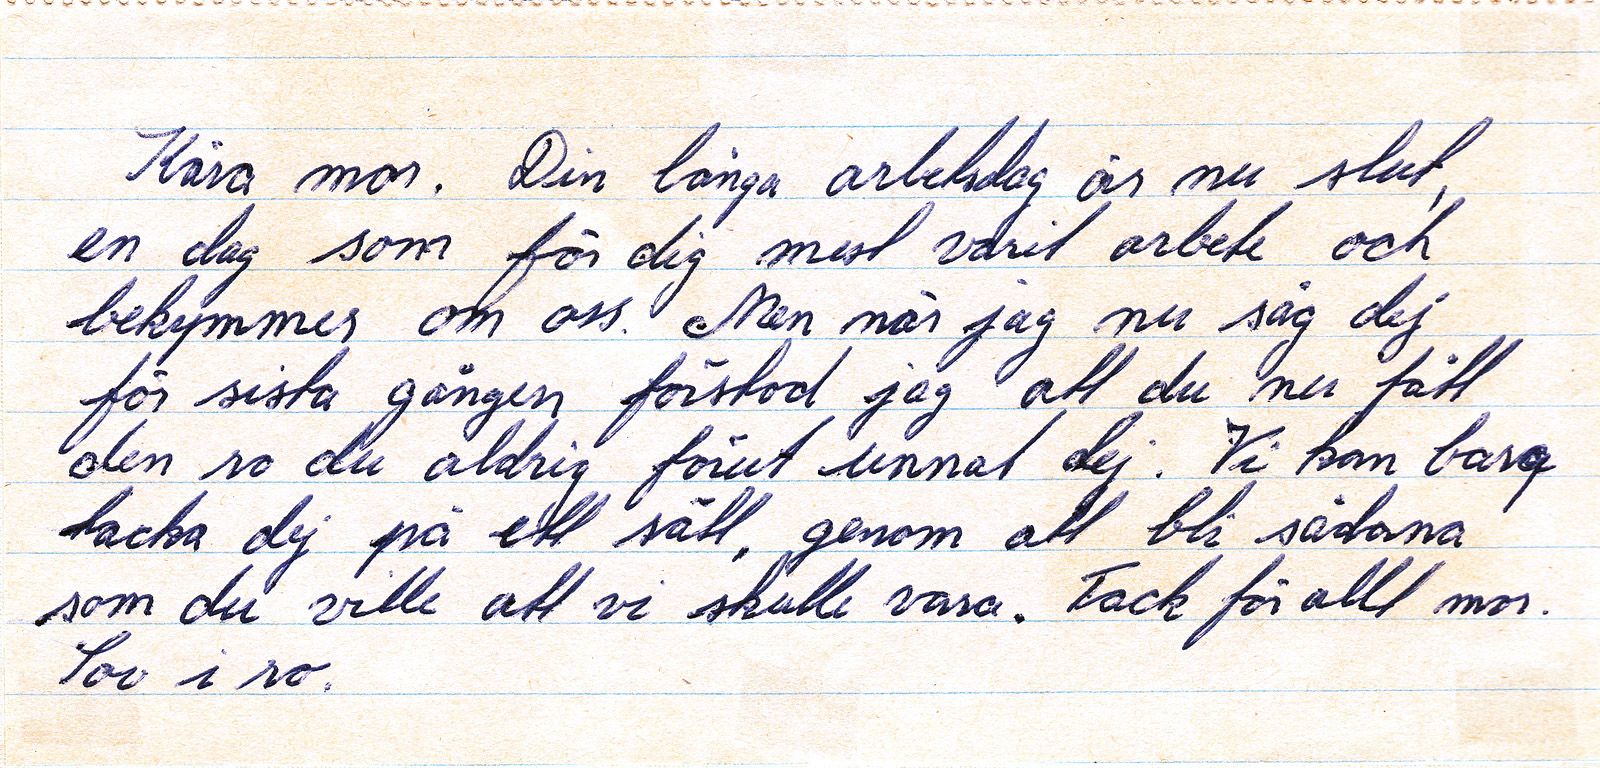 Kära mor. Din långa arbetsdag är nu slut,
en dag som för dig mest varit arbete och
bekymmer om oss. Men när jag nu såg dej
för sista gången förstod jag att du nu fått
den ro du aldrig förut unnat dej. Vi kan bara
tacka dej på ett sätt, genom att bli sådana
som du ville att vi skulle vara. Tack för allt mor.
Sov i ro.